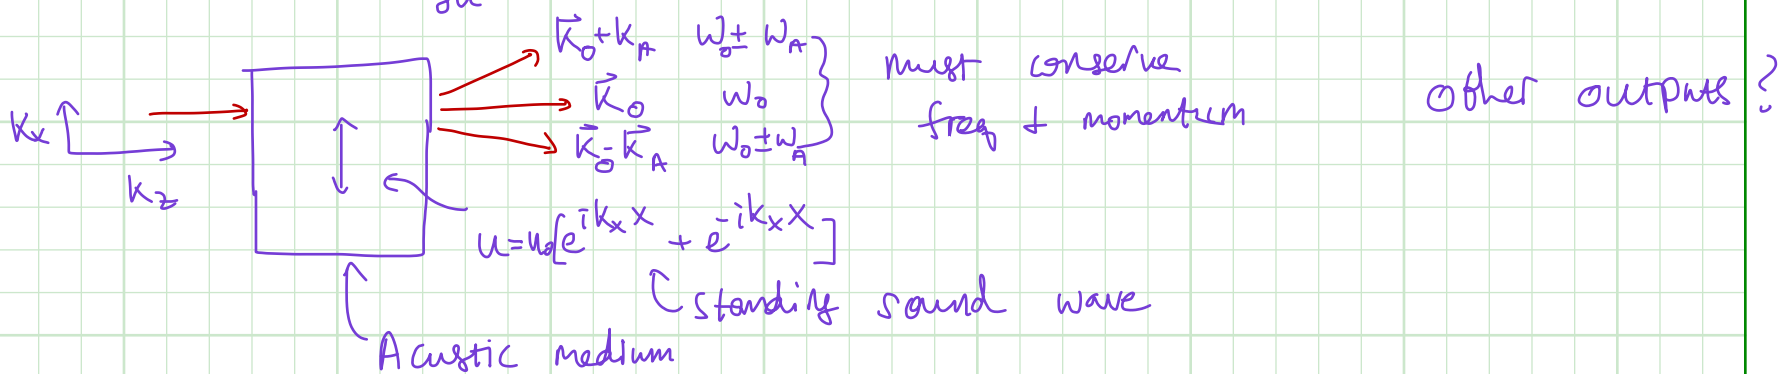 K⃗₀+K_A ω₀±ω_A
K⃗₀ ω₀
K⃗₀-K⃗_A ω₀±ω_A
must conserve
freq + momentum
other outputs ?
Kx
Kz
u=u₀[e^{ikₓx} + e^{-ikₓx}]
standing sound wave
Acustic medium